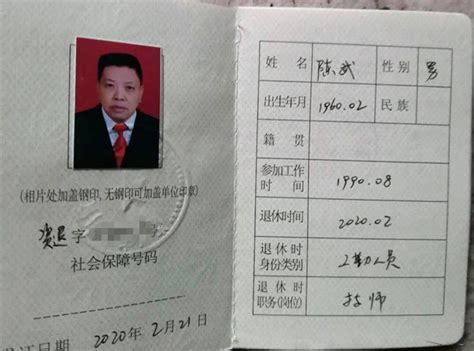 (相片处加盖钢印,无钢印可加盖单位印章)
资退字
社会保障号码
发证日期 2020年2月21日
姓名 陈武 性别 男
出生年月 1960.02 民族
籍贯
参加工作时间 1990.08
退休时间 2020.02
退休时身份类别 工勤人员
退休时职务(岗位) 技师